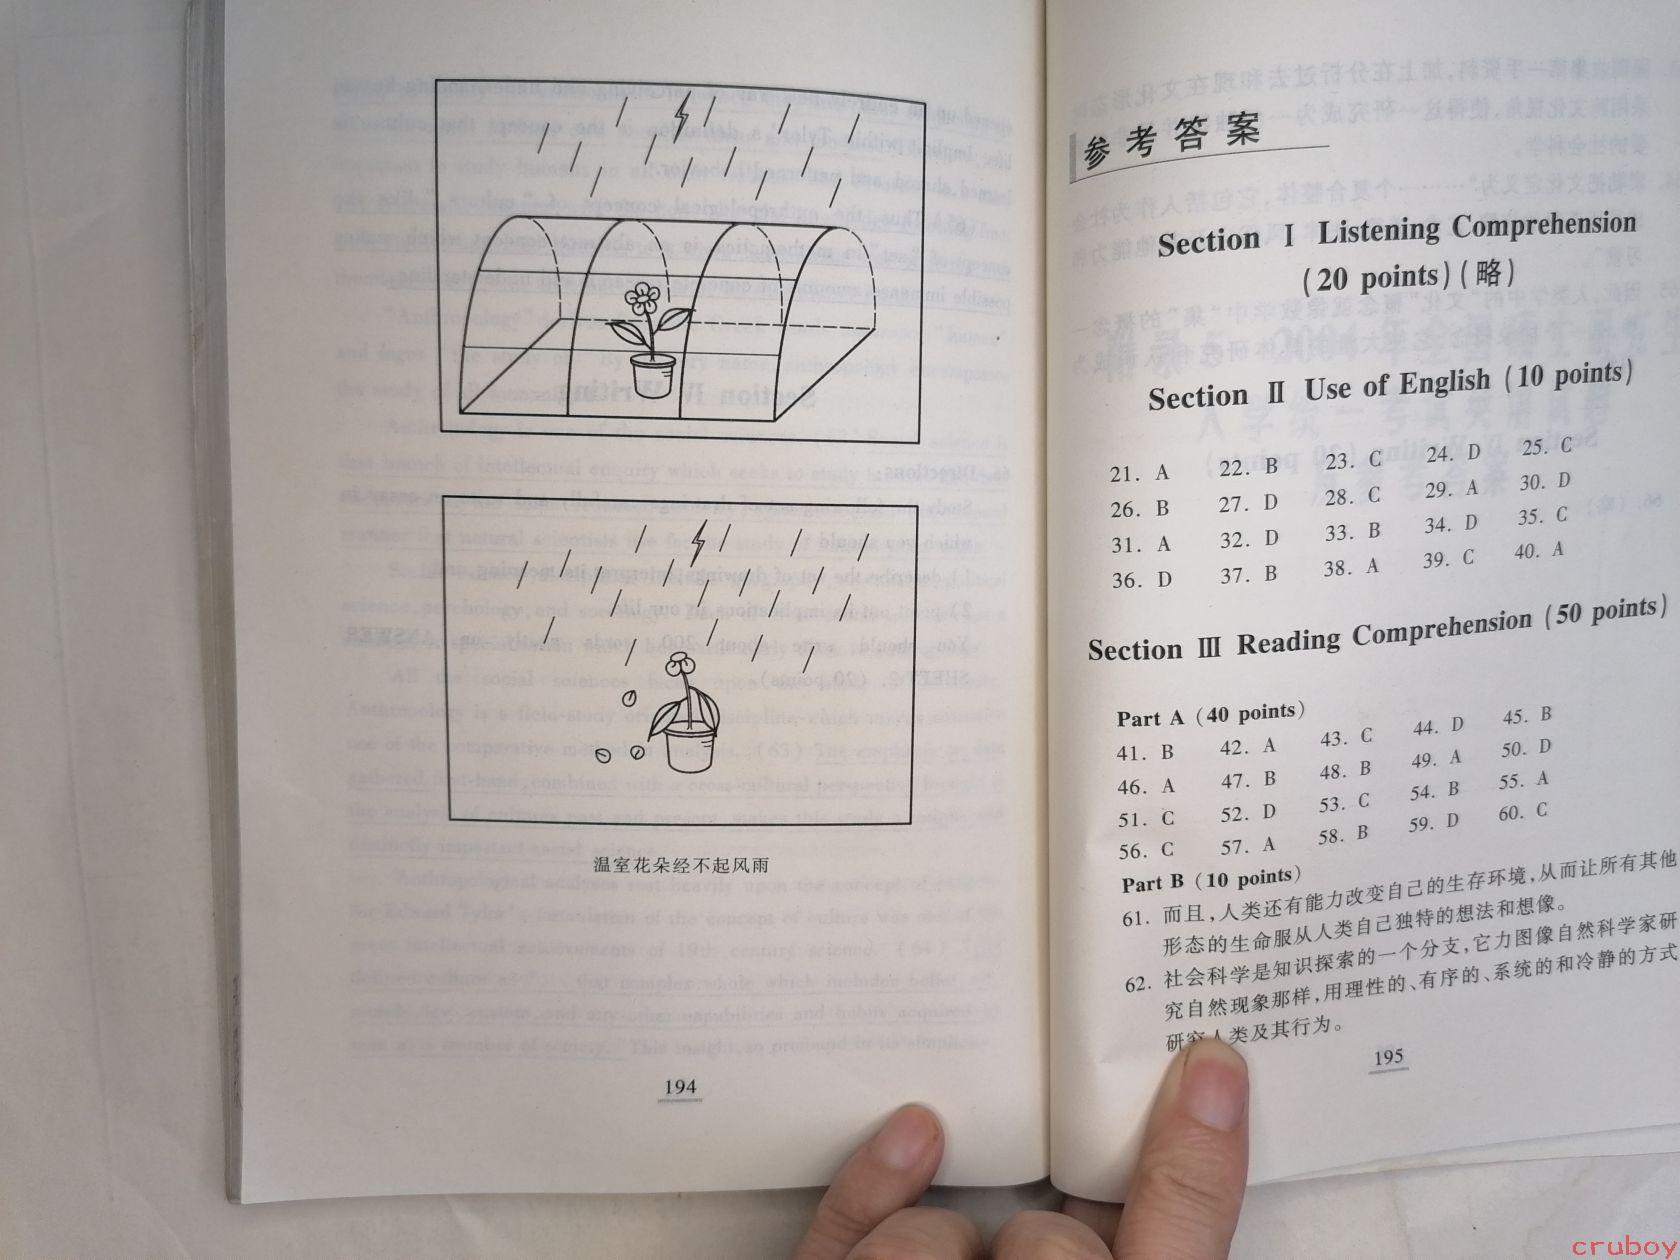 温室花朵经不起风雨
194
参考答案
Section Ⅰ Listening Comprehension
(20 points)(略)
Section Ⅱ Use of English (10 points)
21. A 22. B 23. C 24. D 25. C
26. B 27. D 28. C 29. A 30. D
31. A 32. D 33. B 34. D 35. C
36. D 37. B 38. A 39. C 40. A
Section Ⅲ Reading Comprehension (50 points)
Part A (40 points)
41. B 42. A 43. C 44. D 45. B
46. A 47. B 48. B 49. A 50. D
51. C 52. D 53. C 54. B 55. A
56. C 57. A 58. B 59. D 60. C
Part B (10 points)
61. 而且,人类还有能力改变自己的生存环境,从而让所有其他
形态的生命服从人类自己独特的想法和想像。
62. 社会科学是知识探索的一个分支,它力图像自然科学家研
究自然现象那样,用理性的、有序的、系统的和冷静的方式
研究人类及其行为。
195
cruboy